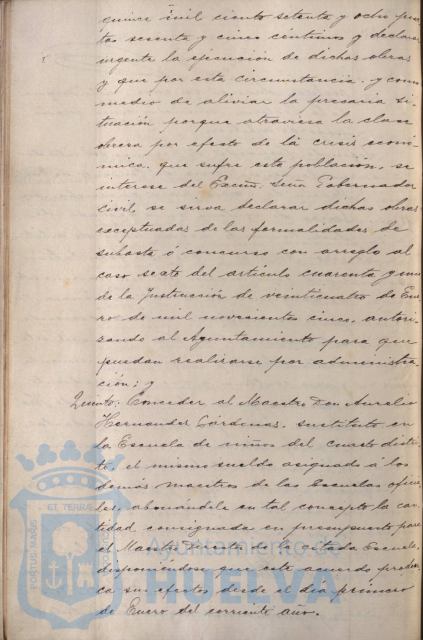 quince mil ciento setenta y ocho pese-
tas sesenta y cinco céntimos y declarar
urgente la ejecución de dichas obras
y que por esta circunstancia y como
medio de aliviar la precaria si-
tuación porque atraviesa la clase
obrera por efecto de la crisis econó-
mica que sufre esta población, se
interese del Excmo. Señor Gobernador
civil, se sirva declarar dichas obras
exceptuadas de las formalidades de
subasta ó concurso con arreglo al
caso sexto del artículo cuarenta y uno
de la Instrucción de veinticuatro de Ene-
ro de mil novecientos cinco, autori-
zando al Ayuntamiento para que
puedan realizarse por administra-
ción; y
Quinto: Conceder al Maestro Don Aurelio
Hernandez Cárdenas, sustituto en
la Escuela de niños del cuarto distri-
to, el mismo sueldo asignado á los
demás maestros de las Escuelas oficia-
les, abonándole en tal concepto la can-
tidad consignada en presupuesto para
el Maestro de la citada Escuela,
disponiéndose que este acuerdo produz-
ca sus efectos desde el día primero
de Enero del corriente año.
Ayuntamiento de
HUELVA
PORTUS MARIS
ET TERRAE